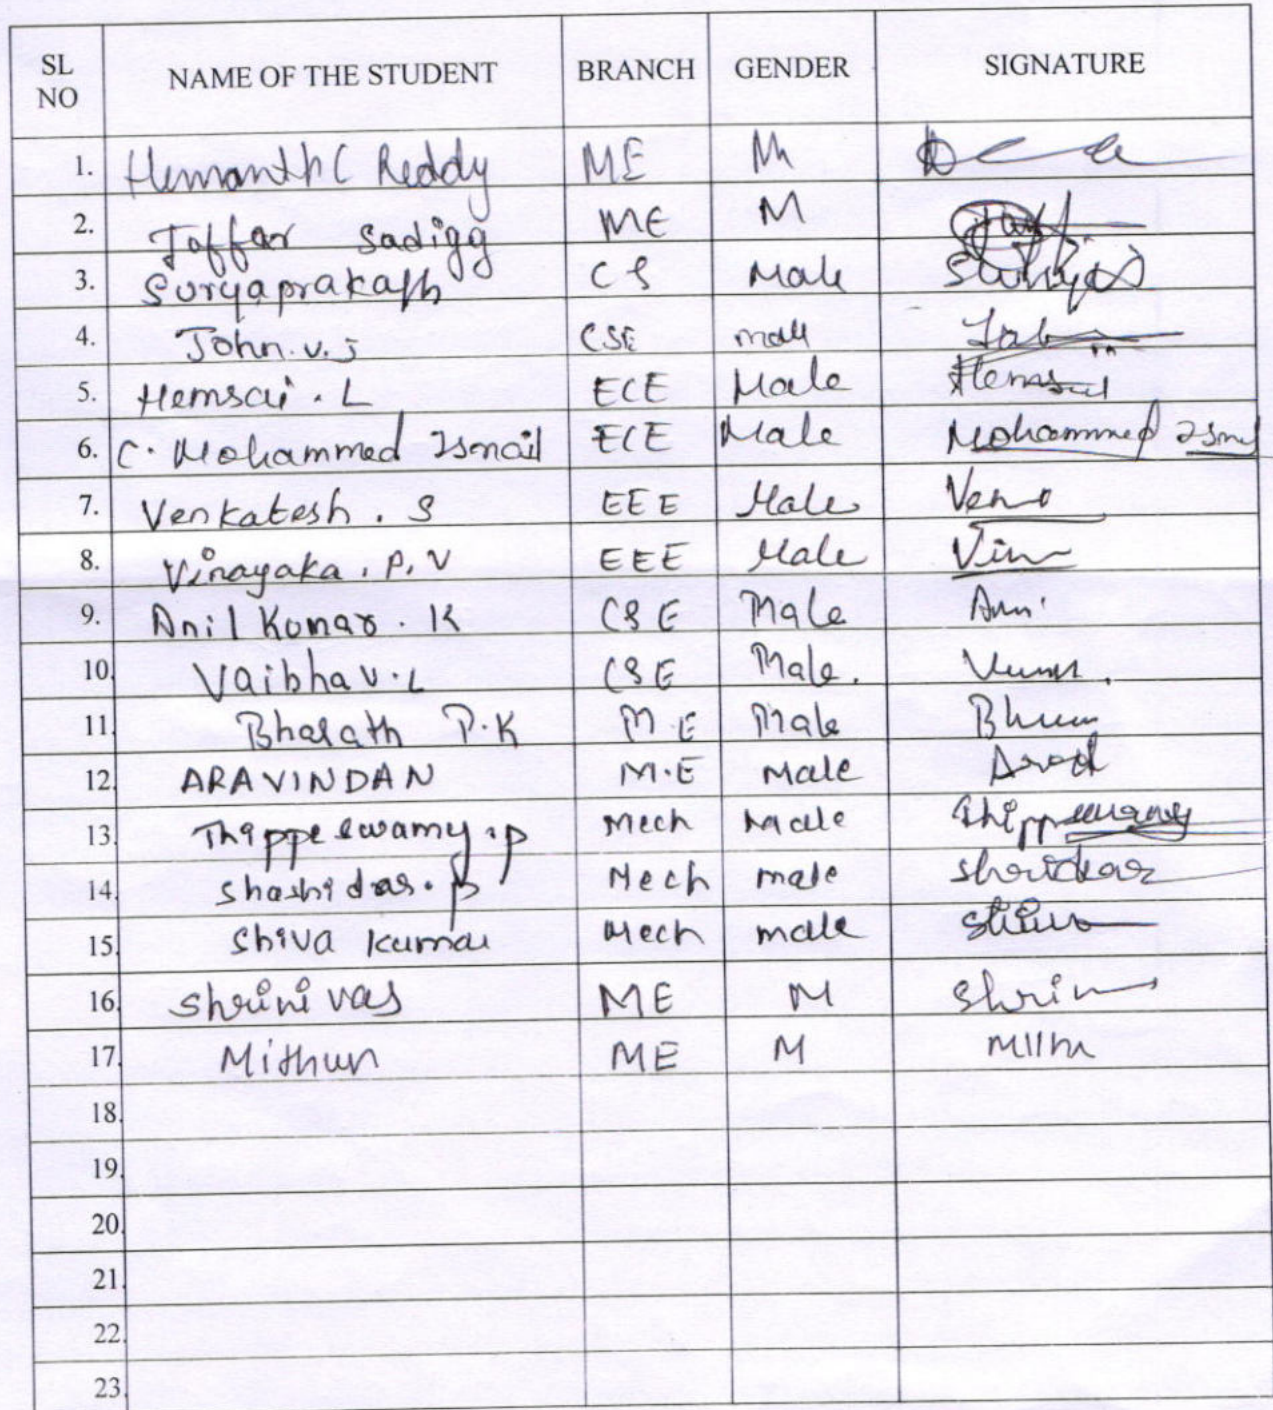 SL NO NAME OF THE STUDENT BRANCH GENDER SIGNATURE
1. Hemanth C Reddy ME M
2. Jaffar Sadigg ME M
3. Suryaprakash CS Male
4. John.v.j CSE male
5. Hemsai.L ECE Male Hemsai
6. C. Mohammed Ismail ECE Male Mohammed Ismail
7. Venkatesh.S EEE Male
8. Vinayaka.P.V EEE Male
9. Anil Kumar.K CSE Male
10. Vaibhav.L CSE Male.
11. Bharath P.K M.E Male
12. ARAVINDAN M.E Male
13. Thippeswamy.p Mech Male Thippeswamy
14. Shashidar.p Mech male
15. Shiva Kumar Mech male
16. Shrinivas ME M
17. Mithun ME M
18.
19.
20.
21.
22.
23.